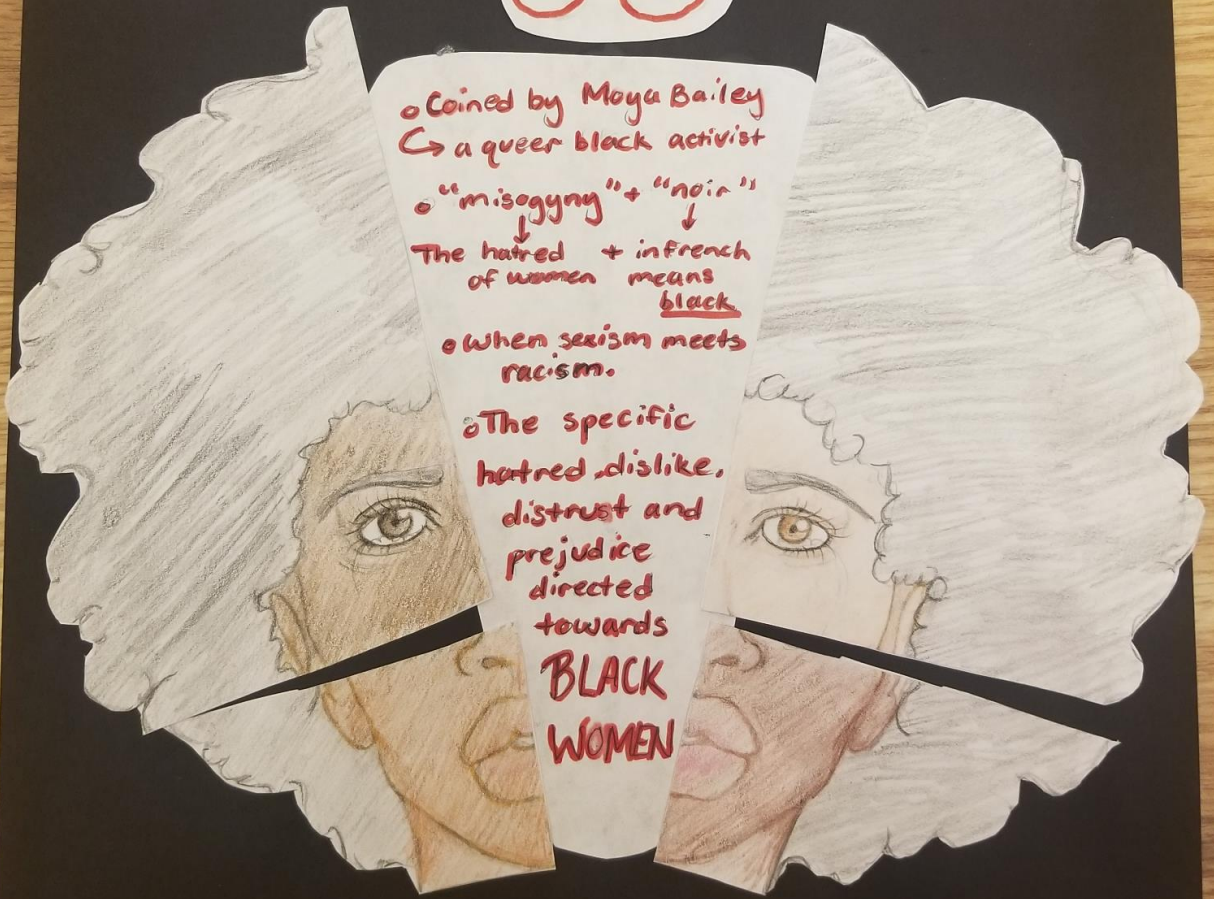 • Coined by Moya Bailey
↳ a queer black activist
• "misogyny" + "noir"
↓ ↓
The hatred + in French
of women means
black
• When sexism meets
racism.
• The specific
hatred, dislike,
distrust and
prejudice
directed
towards
BLACK
WOMEN